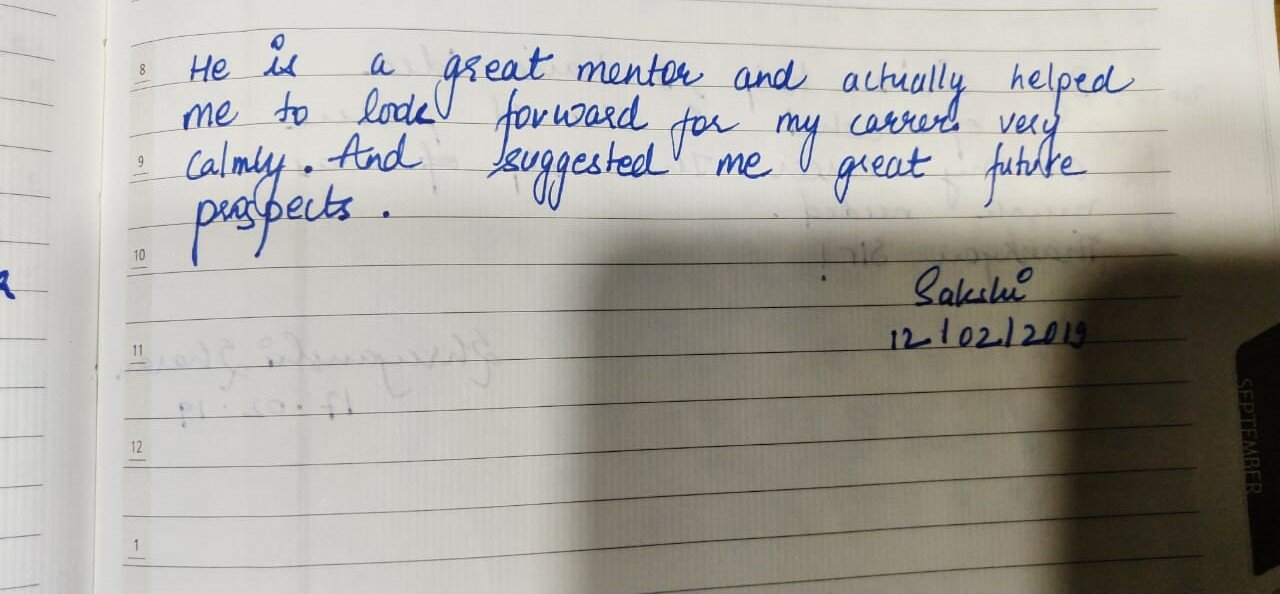 8 He is a great mentor and actually helped
me to look forward for my carrer very
9 calmly. And suggested me great future
prospects.
10
Sakshi
12/02/2019
11
12
1
SEPTEMBER